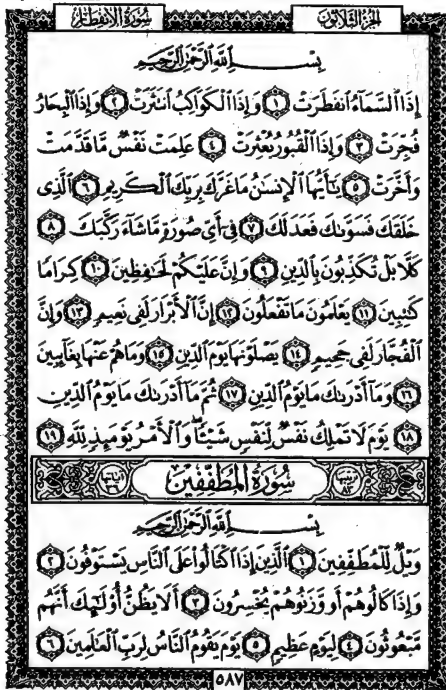 سُورَةُ الانفِطَارِ الجُزْءُ الثَّلَاثُونَ
بِسْمِ اللَّهِ الرَّحْمَٰنِ الرَّحِيمِ
إِذَا السَّمَاءُ انفَطَرَتْ ١ وَإِذَا الْكَوَاكِبُ انتَثَرَتْ ٢ وَإِذَا الْبِحَارُ
فُجِّرَتْ ٣ وَإِذَا الْقُبُورُ بُعْثِرَتْ ٤ عَلِمَتْ نَفْسٌ مَّا قَدَّمَتْ
وَأَخَّرَتْ ٥ يَٰأَيُّهَا الْإِنسَٰنُ مَا غَرَّكَ بِرَبِّكَ الْكَرِيمِ ٦ الَّذِى
خَلَقَكَ فَسَوَّىٰكَ فَعَدَلَكَ ٧ فِى أَىِّ صُورَةٍ مَّا شَاءَ رَكَّبَكَ ٨
كَلَّا بَلْ تُكَذِّبُونَ بِالدِّينِ ٩ وَإِنَّ عَلَيْكُمْ لَحَٰفِظِينَ ١٠ كِرَامًا
كَٰتِبِينَ ١١ يَعْلَمُونَ مَا تَفْعَلُونَ ١٢ إِنَّ الْأَبْرَارَ لَفِى نَعِيمٍ ١٣ وَإِنَّ
الْفُجَّارَ لَفِى جَحِيمٍ ١٤ يَصْلَوْنَهَا يَوْمَ الدِّينِ ١٥ وَمَا هُمْ عَنْهَا بِغَائِبِينَ
١٦ وَمَا أَدْرَىٰكَ مَا يَوْمُ الدِّينِ ١٧ ثُمَّ مَا أَدْرَىٰكَ مَا يَوْمُ الدِّينِ
١٨ يَوْمَ لَا تَمْلِكُ نَفْسٌ لِّنَفْسٍ شَيْئًا وَالْأَمْرُ يَوْمَئِذٍ لِّلَّهِ ١٩
تَرتيبها ٨٣ سُورَةُ المُطَفِّفِينَ آياتها ٣٦
بِسْمِ اللَّهِ الرَّحْمَٰنِ الرَّحِيمِ
وَيْلٌ لِّلْمُطَفِّفِينَ ١ الَّذِينَ إِذَا اكْتَالُوا عَلَى النَّاسِ يَسْتَوْفُونَ ٢
وَإِذَا كَالُوهُمْ أَو وَّزَنُوهُمْ يُخْسِرُونَ ٣ أَلَا يَظُنُّ أُولَٰئِكَ أَنَّهُم
مَّبْعُوثُونَ ٤ لِيَوْمٍ عَظِيمٍ ٥ يَوْمَ يَقُومُ النَّاسُ لِرَبِّ الْعَالَمِينَ ٦
٥٨٧